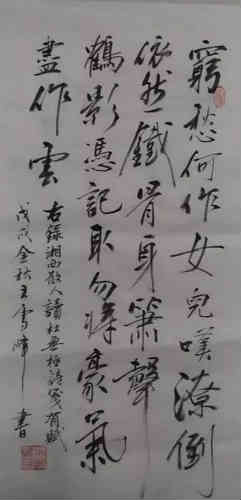 窮愁何作女兒嘆潦倒
依然鐵骨身簫聲
鶴影憑記取勿將豪氣
盡作雲
右錄湘西散人讀杜詩箋有賦
戊戌金秋王雪峰書